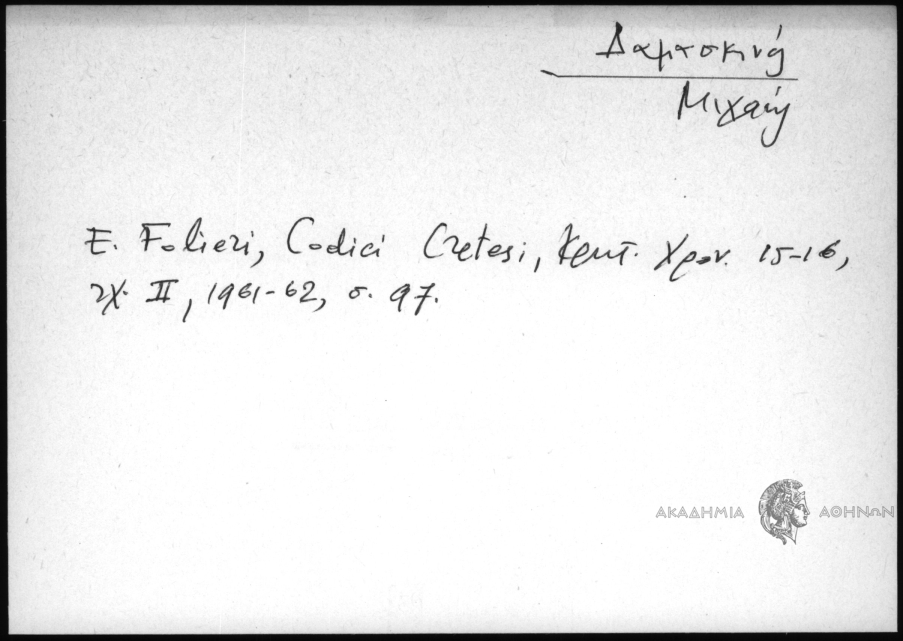 Δαμασκινός
Μιχαήλ
E. Folieri, Codici Cretesi, Κρητ. Χρον. 15-16,
τχ. II, 1961-62, σ. 97.
ΑΚΑΔΗΜΙΑ ΑΘΗΝΩΝ